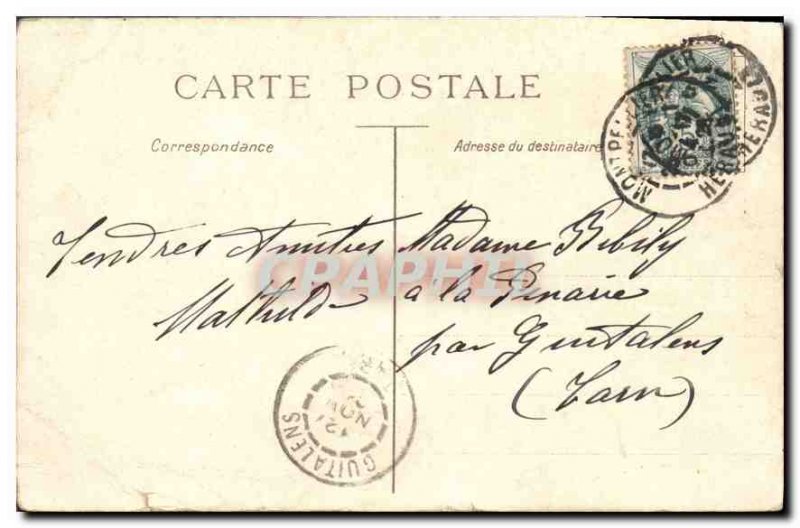 CARTE POSTALE
Correspondance
Adresse du destinataire
Tendres Amities
Mathilde
Madame Bibily
à la Penarié
par Guitalens
(Tarn)
CRAPHIL
GUITALENS
NOV
MONTPELLIER
HERAULT